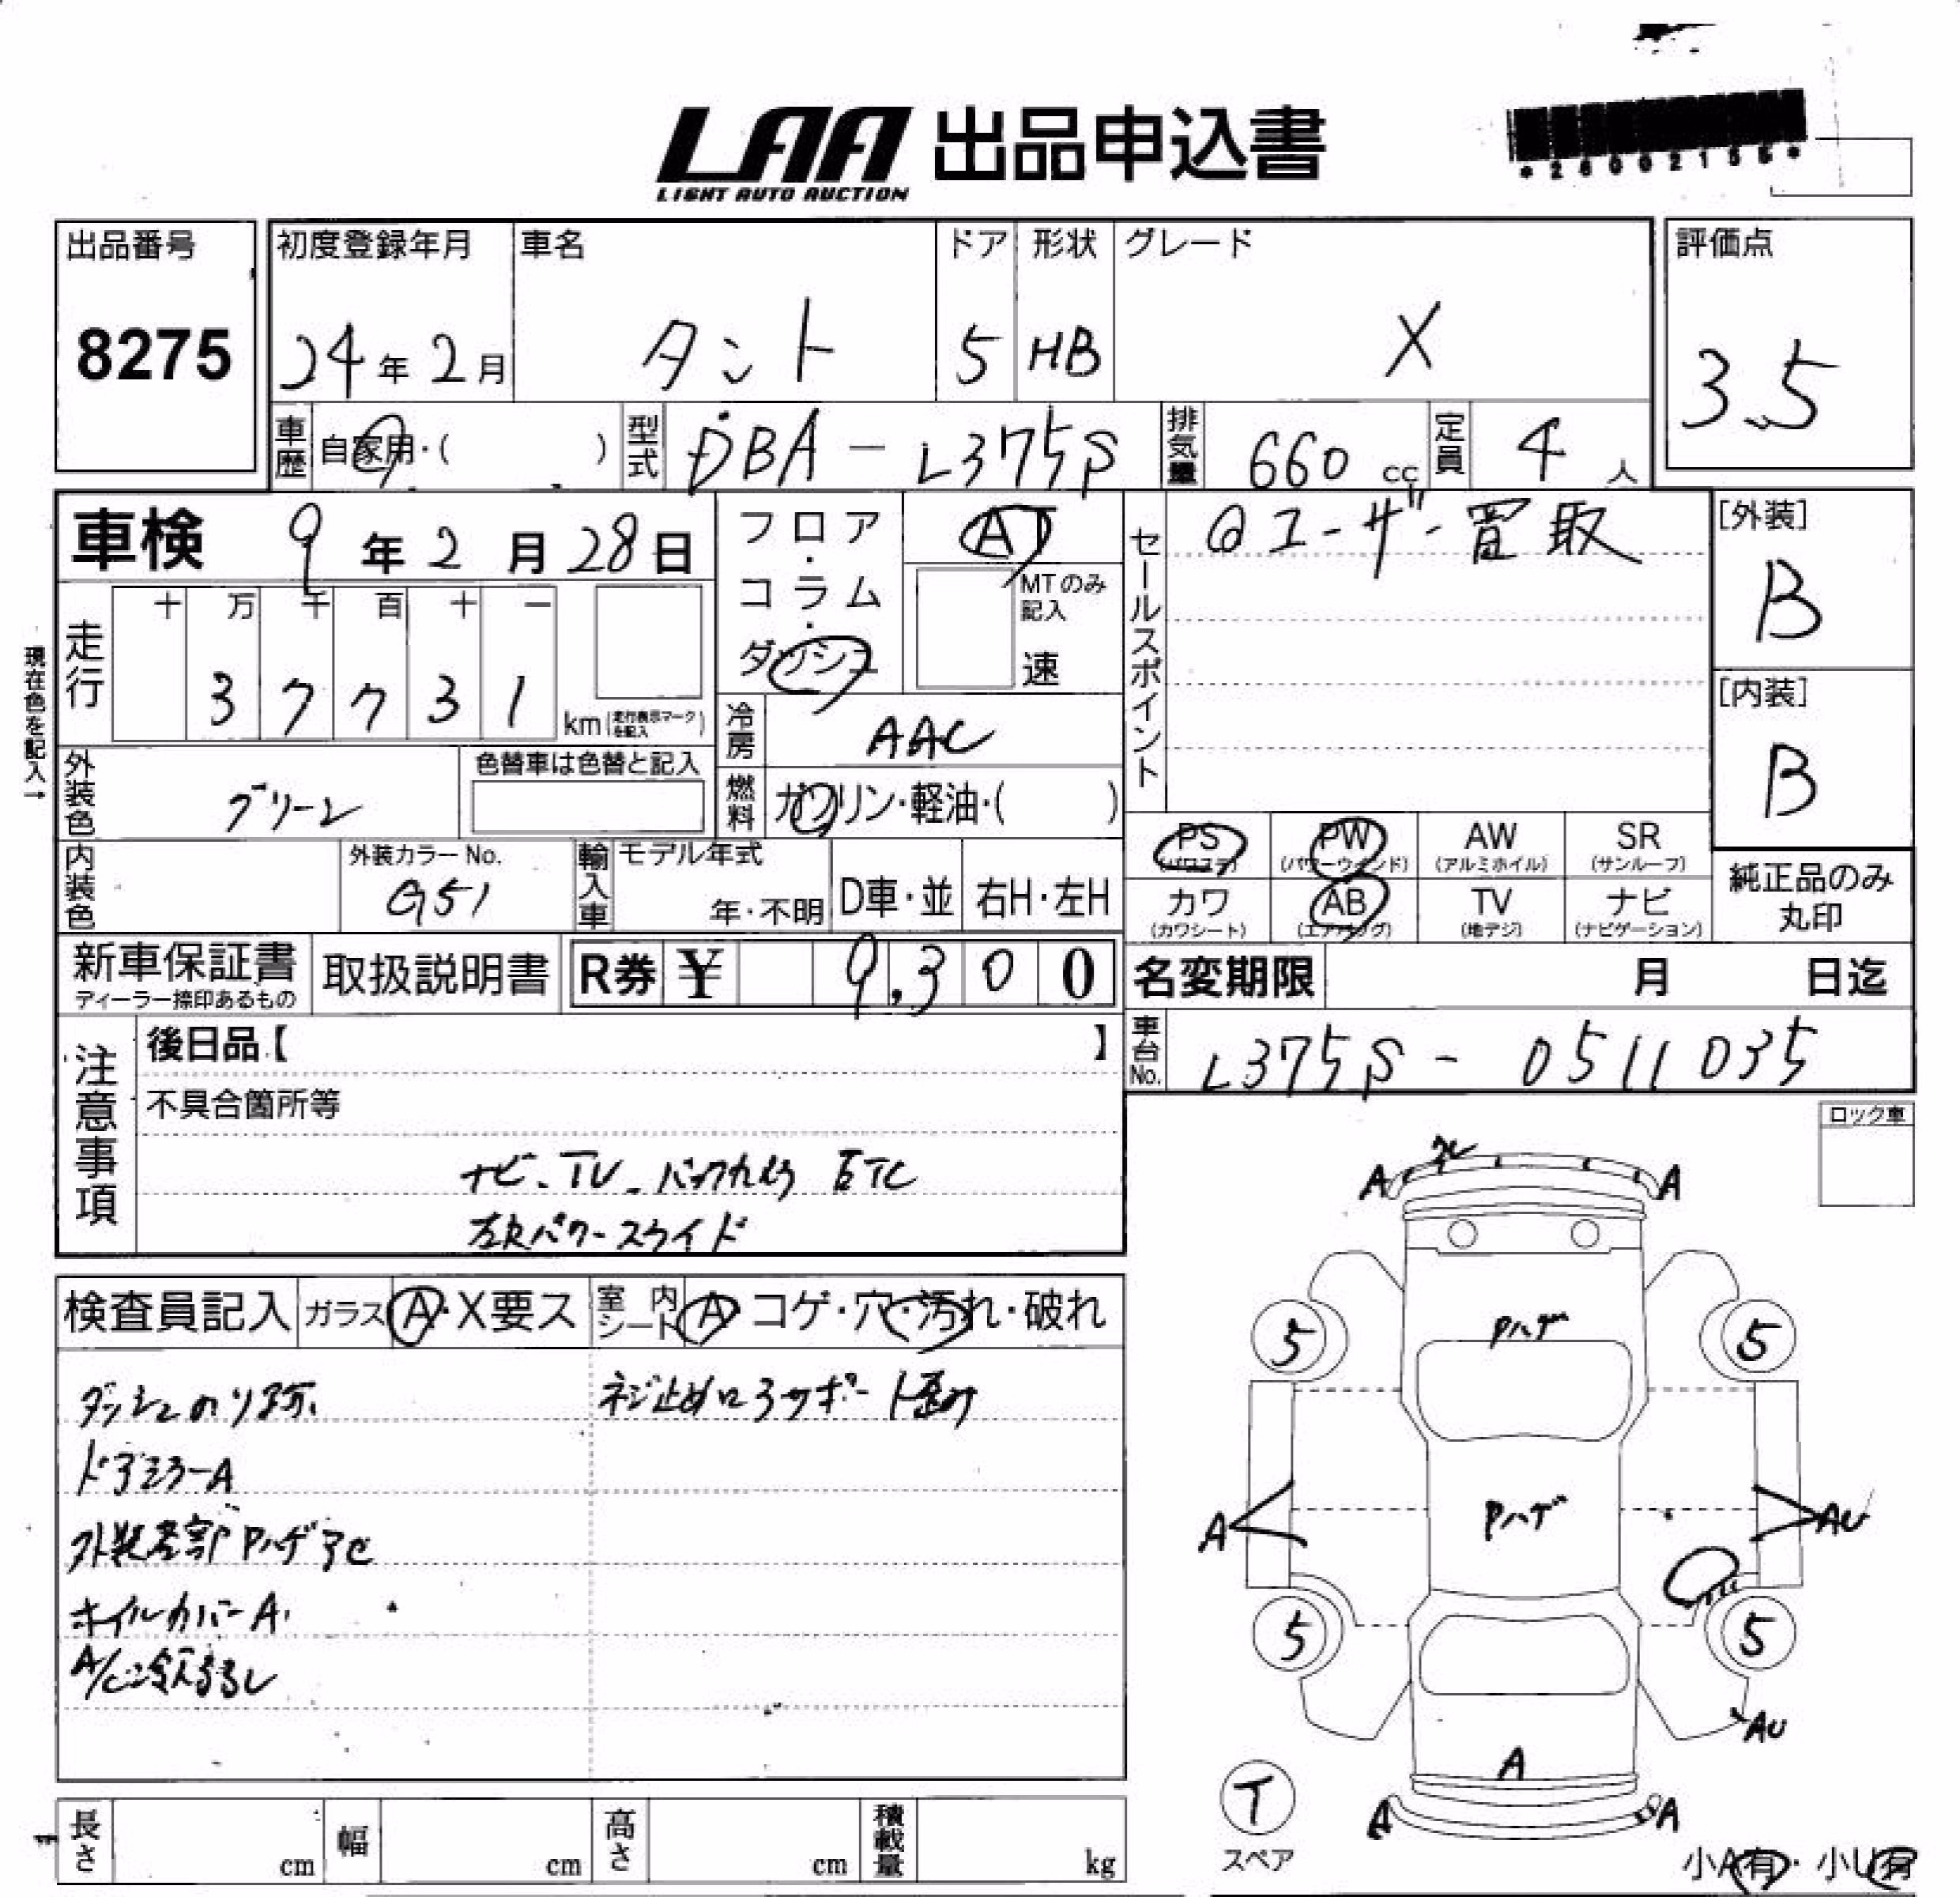 LAA 出品申込書
LIGHT AUTO AUCTION
*26002155*
出品番号 初度登録年月 車名 ドア 形状 グレード 評価点
8275 24年2月 タント 5 HB X 3.5
車歴 自家用・( ) 型式 DBA-L375S 排気量 660cc 定員 4人
車検 9年2月28日 フロア・コラム・ダッシュ AT
MTのみ記入 速
セールスポイント @ユーザー買取
[外装] B
現在色を記入→
走行 十 万 千 百 十 一
3 7 7 3 1 km(走行表示マークを記入)
冷房 AAC
[内装] B
外装色 グリーン 色替車は色替と記入
燃料 ガソリン・軽油・( )
PS(パワステ) PW(パワーウィンド) AW(アルミホイル) SR(サンルーフ)
内装色 外装カラーNo. G51 輸入車 モデル年式 年・不明 D車・並 右H・左H
カワ(カワシート) AB(エアバッグ) TV(地デジ) ナビ(ナビゲーション)
純正品のみ丸印
新車保証書 ディーラー捺印あるもの 取扱説明書 R券 ¥ 9,300
名変期限 月 日迄
注意事項 後日品【 】
車台No. L375S-0511035
不具合箇所等
ナビ、TV、バックカメラ ETC
左Rパワースライド
ロック車
検査員記入 ガラス A・X要ス 室内シート A・コゲ・穴・汚れ・破れ
ダッシュのり跡、 ネジ止めロアサポート歪み
ドアミラーA
外装各部Pハゲアセ
ホイルカバーA、
A/C冷え
A A
Pハゲ
5 5
Pハゲ
A AU
5 5
AU
A
T
スペア
A A
長さ cm 幅 cm 高さ cm 積載量 kg
小A有・小U有